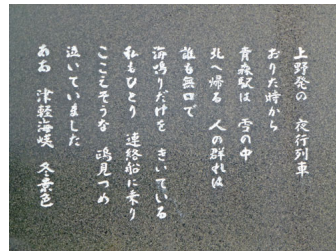 上野発の 夜行列車
おりた時から
青森駅は 雪の中
北へ帰る 人の群れは
誰も無口で
海鳴りだけを きいている
私もひとり 連絡船に乗り
こごえそうな 鴎見つめ
泣いていました
ああ 津軽海峡 冬景色